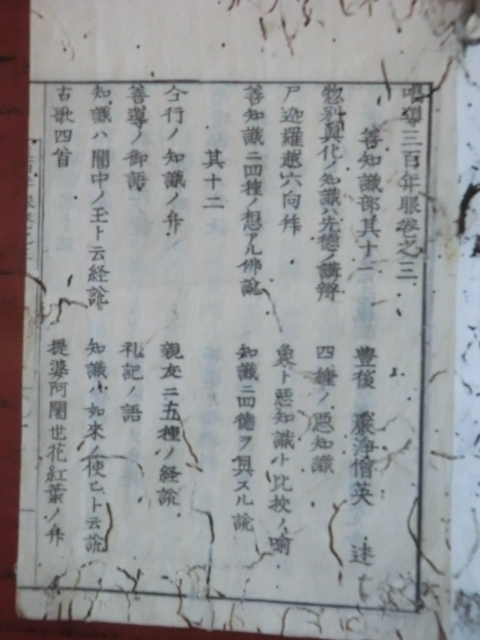 唱導三百年眼巻之三
善知識部其十一　豊後　嚴浄僧英　述
惣別真化ノ知識ハ先徳ノ講辯　四種ノ悪知識
尸迦羅越六向ノ弁　象ト悪知識ト比挍ノ喻
善知識ニ四種ノ想アル佛説　知識ニ四徳ヲ具スル説
其十二
仝行ノ知識ノ弁　親友ニ五種ノ経說
善導ノ御語　礼記ノ語
知識ハ闇中ノ王ト云経說　知識ハ如來ノ使ヒト云説
古歌四首　提婆阿闍世花紅葉ノ弁